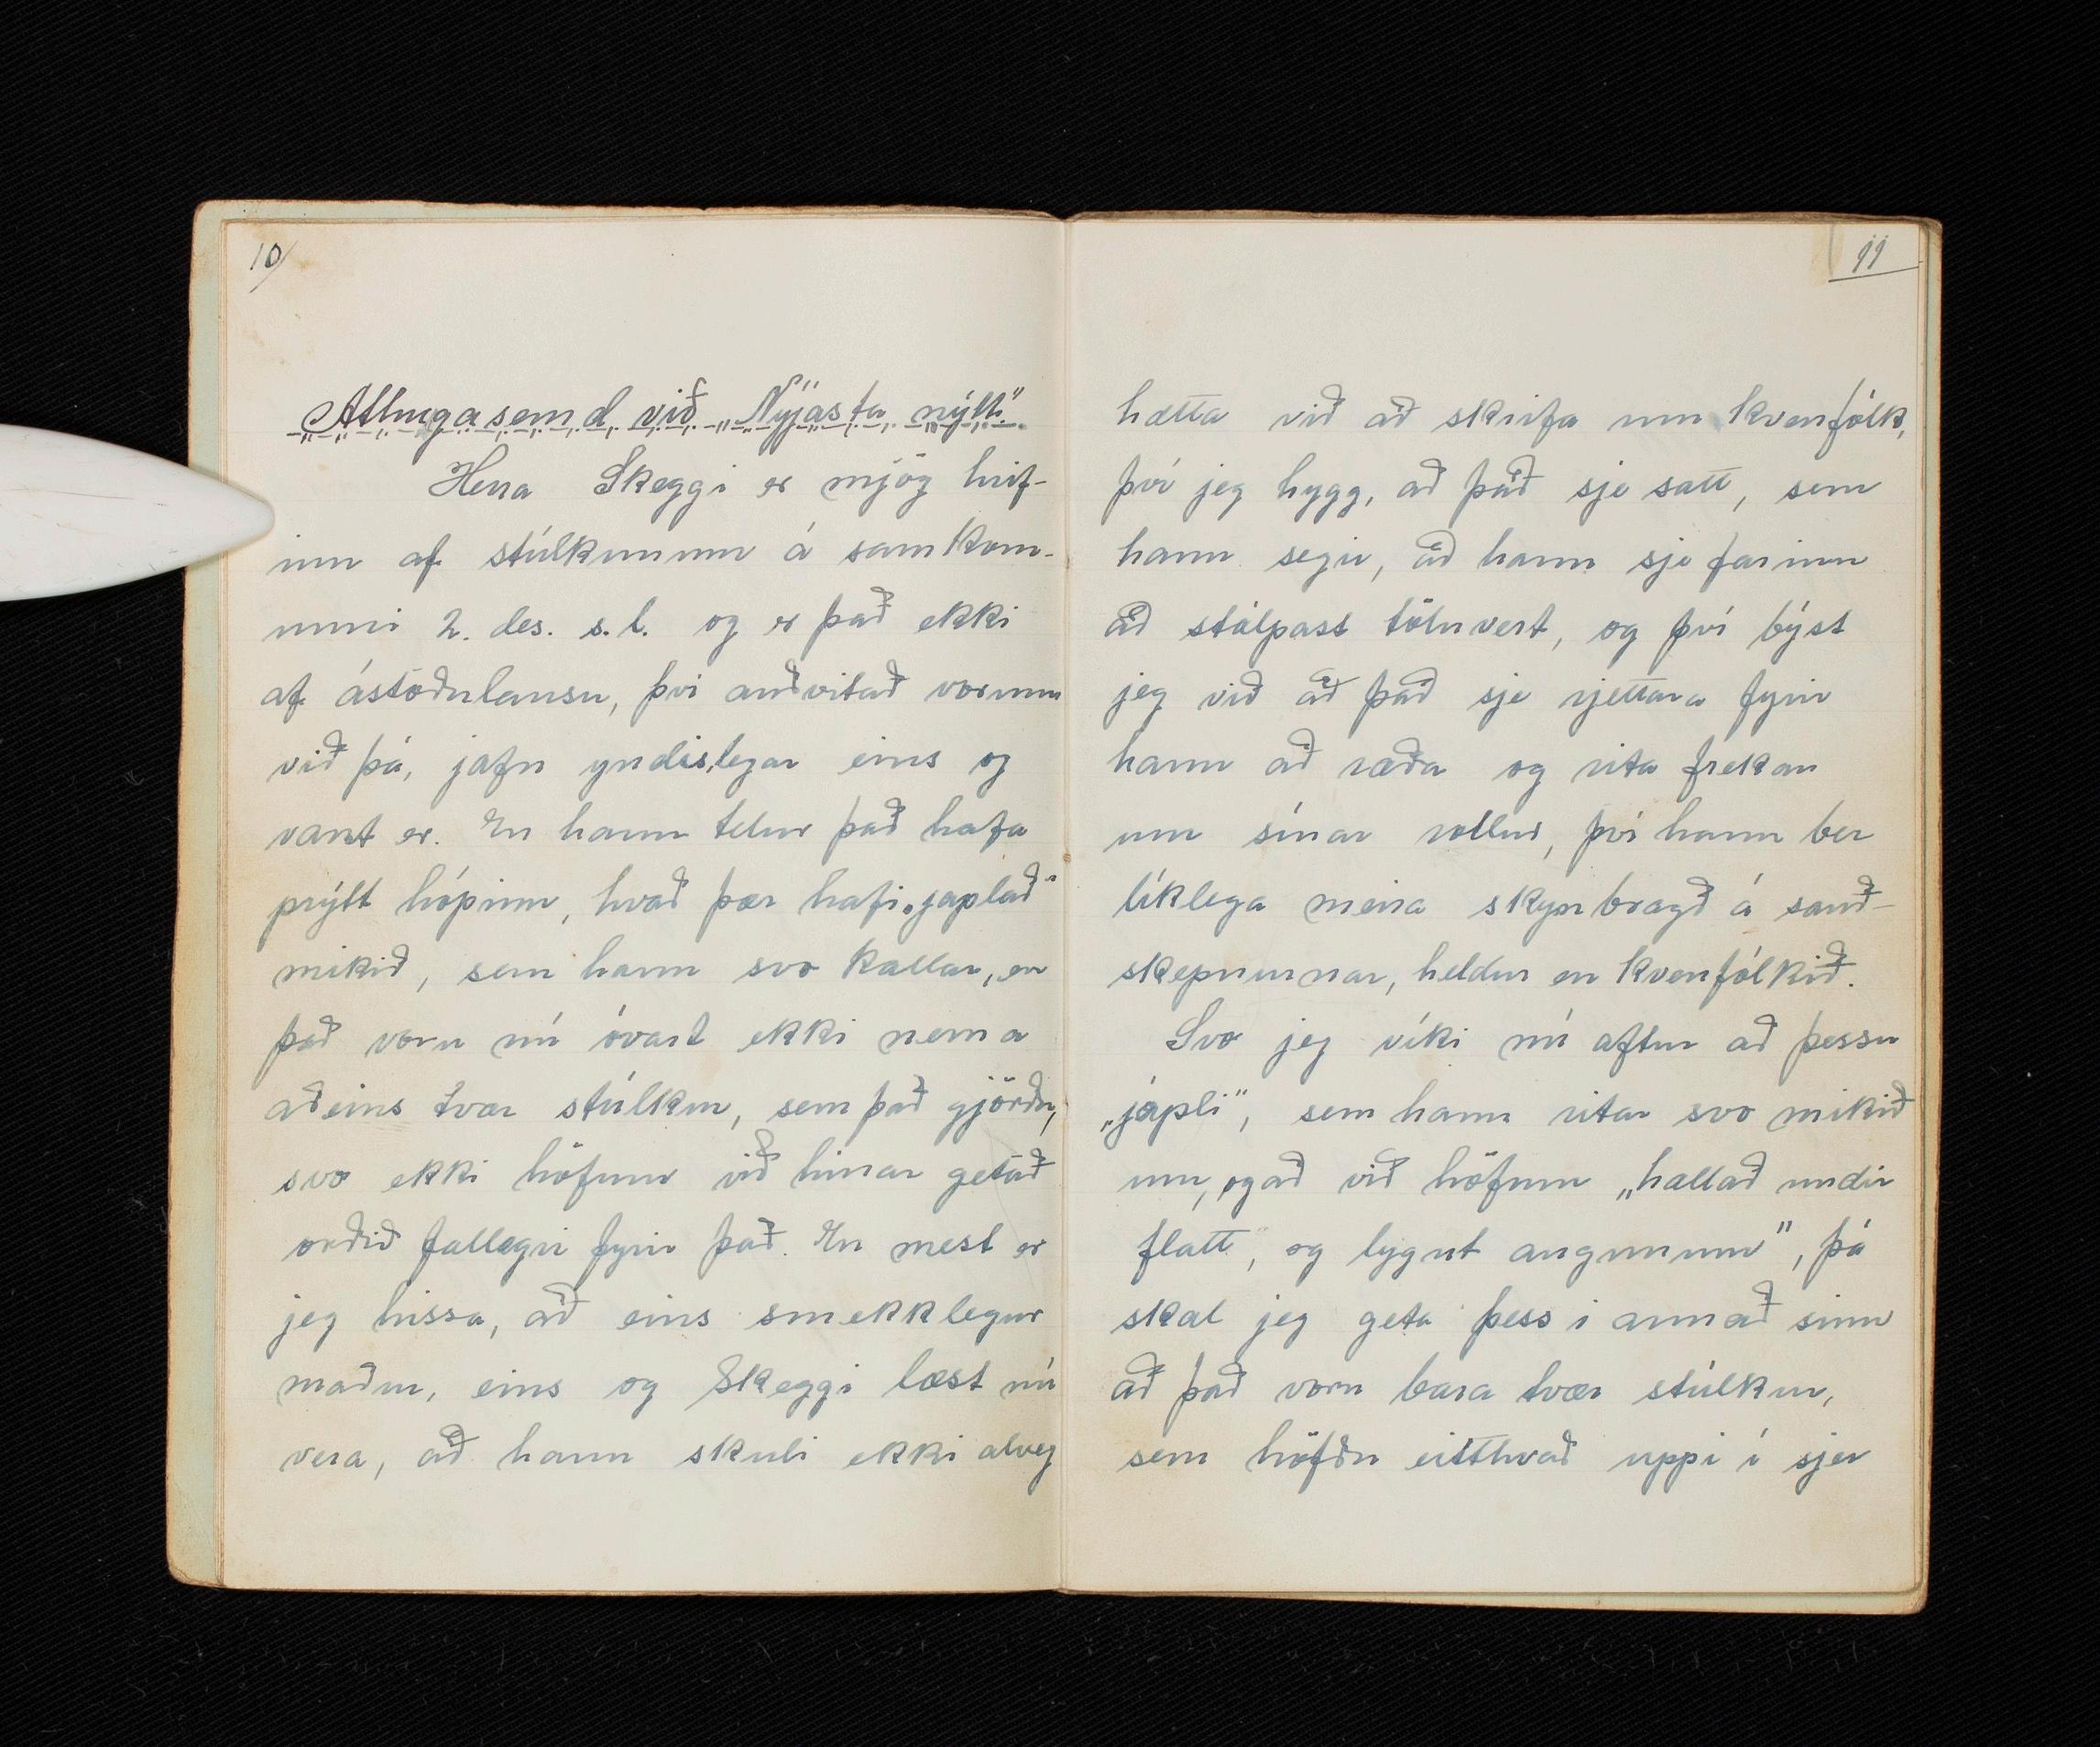 10/
Athugasemd við „Nýjasta nýtt"
Herra Skeggi er mjög hrif-
inn af stúlkunum á samkom-
unni 2. des. s.l. og er það ekki
af ástöðulausu, því auðvitað vorum
við þá, jafn yndislegar eins og
vant er. En hann telur það hafa
prýtt hópinn, hvað þær hafi „japlað"
mikið, sem hann svo kallar, en
það voru nú óvart ekki nema
aðeins tvær stúlkur, sem það gjörðu,
svo ekki höfum við hinar getað
orðið fallegri fyrir það. En mest er
jeg hissa, að eins smekklegur
maður, eins og Skeggi læst nú
vera, að hann skuli ekki alveg
11
hætta við að skrifa um kvenfólk,
því jeg hygg, að það sje satt, sem
hann segir, að hann sje farinn
að stálpast töluvert, og því býst
jeg við að það sje rjettara fyrir
hann að ræða og rita frekar
um sínar rollur, því hann ber
líklega meira skynbragð á sauð-
skepnurnar, heldur en kvenfólkið.
Svo jeg víki nú aftur að þessu
„japli", sem hann ritar svo mikið
um, og að við höfum „hallað undir
flatt, og lygnt augunum", þá
skal jeg geta þess i annað sinn
að það voru bara tvær stúlkur,
sem höfðu eitthvað uppi í sjer